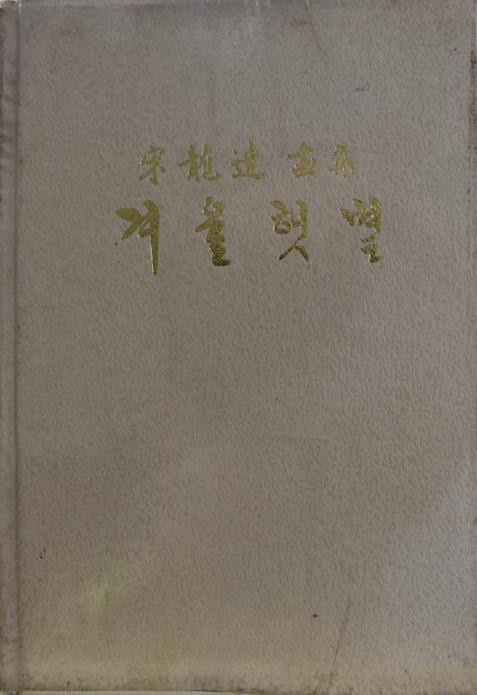 宋龍達 畵集
겨울 햇볕